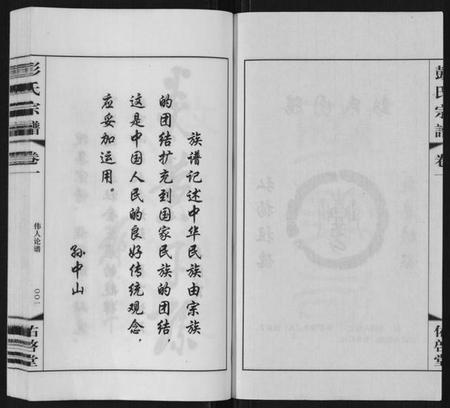 彭氏宗譜
卷一
佑啓堂
彭氏宗譜
卷一
伟人论谱
〇〇一
佑啓堂
族谱记述中华民族由宗族
的团结扩充到国家民族的团结，
这是中国人民的良好传统观念，
应妥加运用。
孙中山